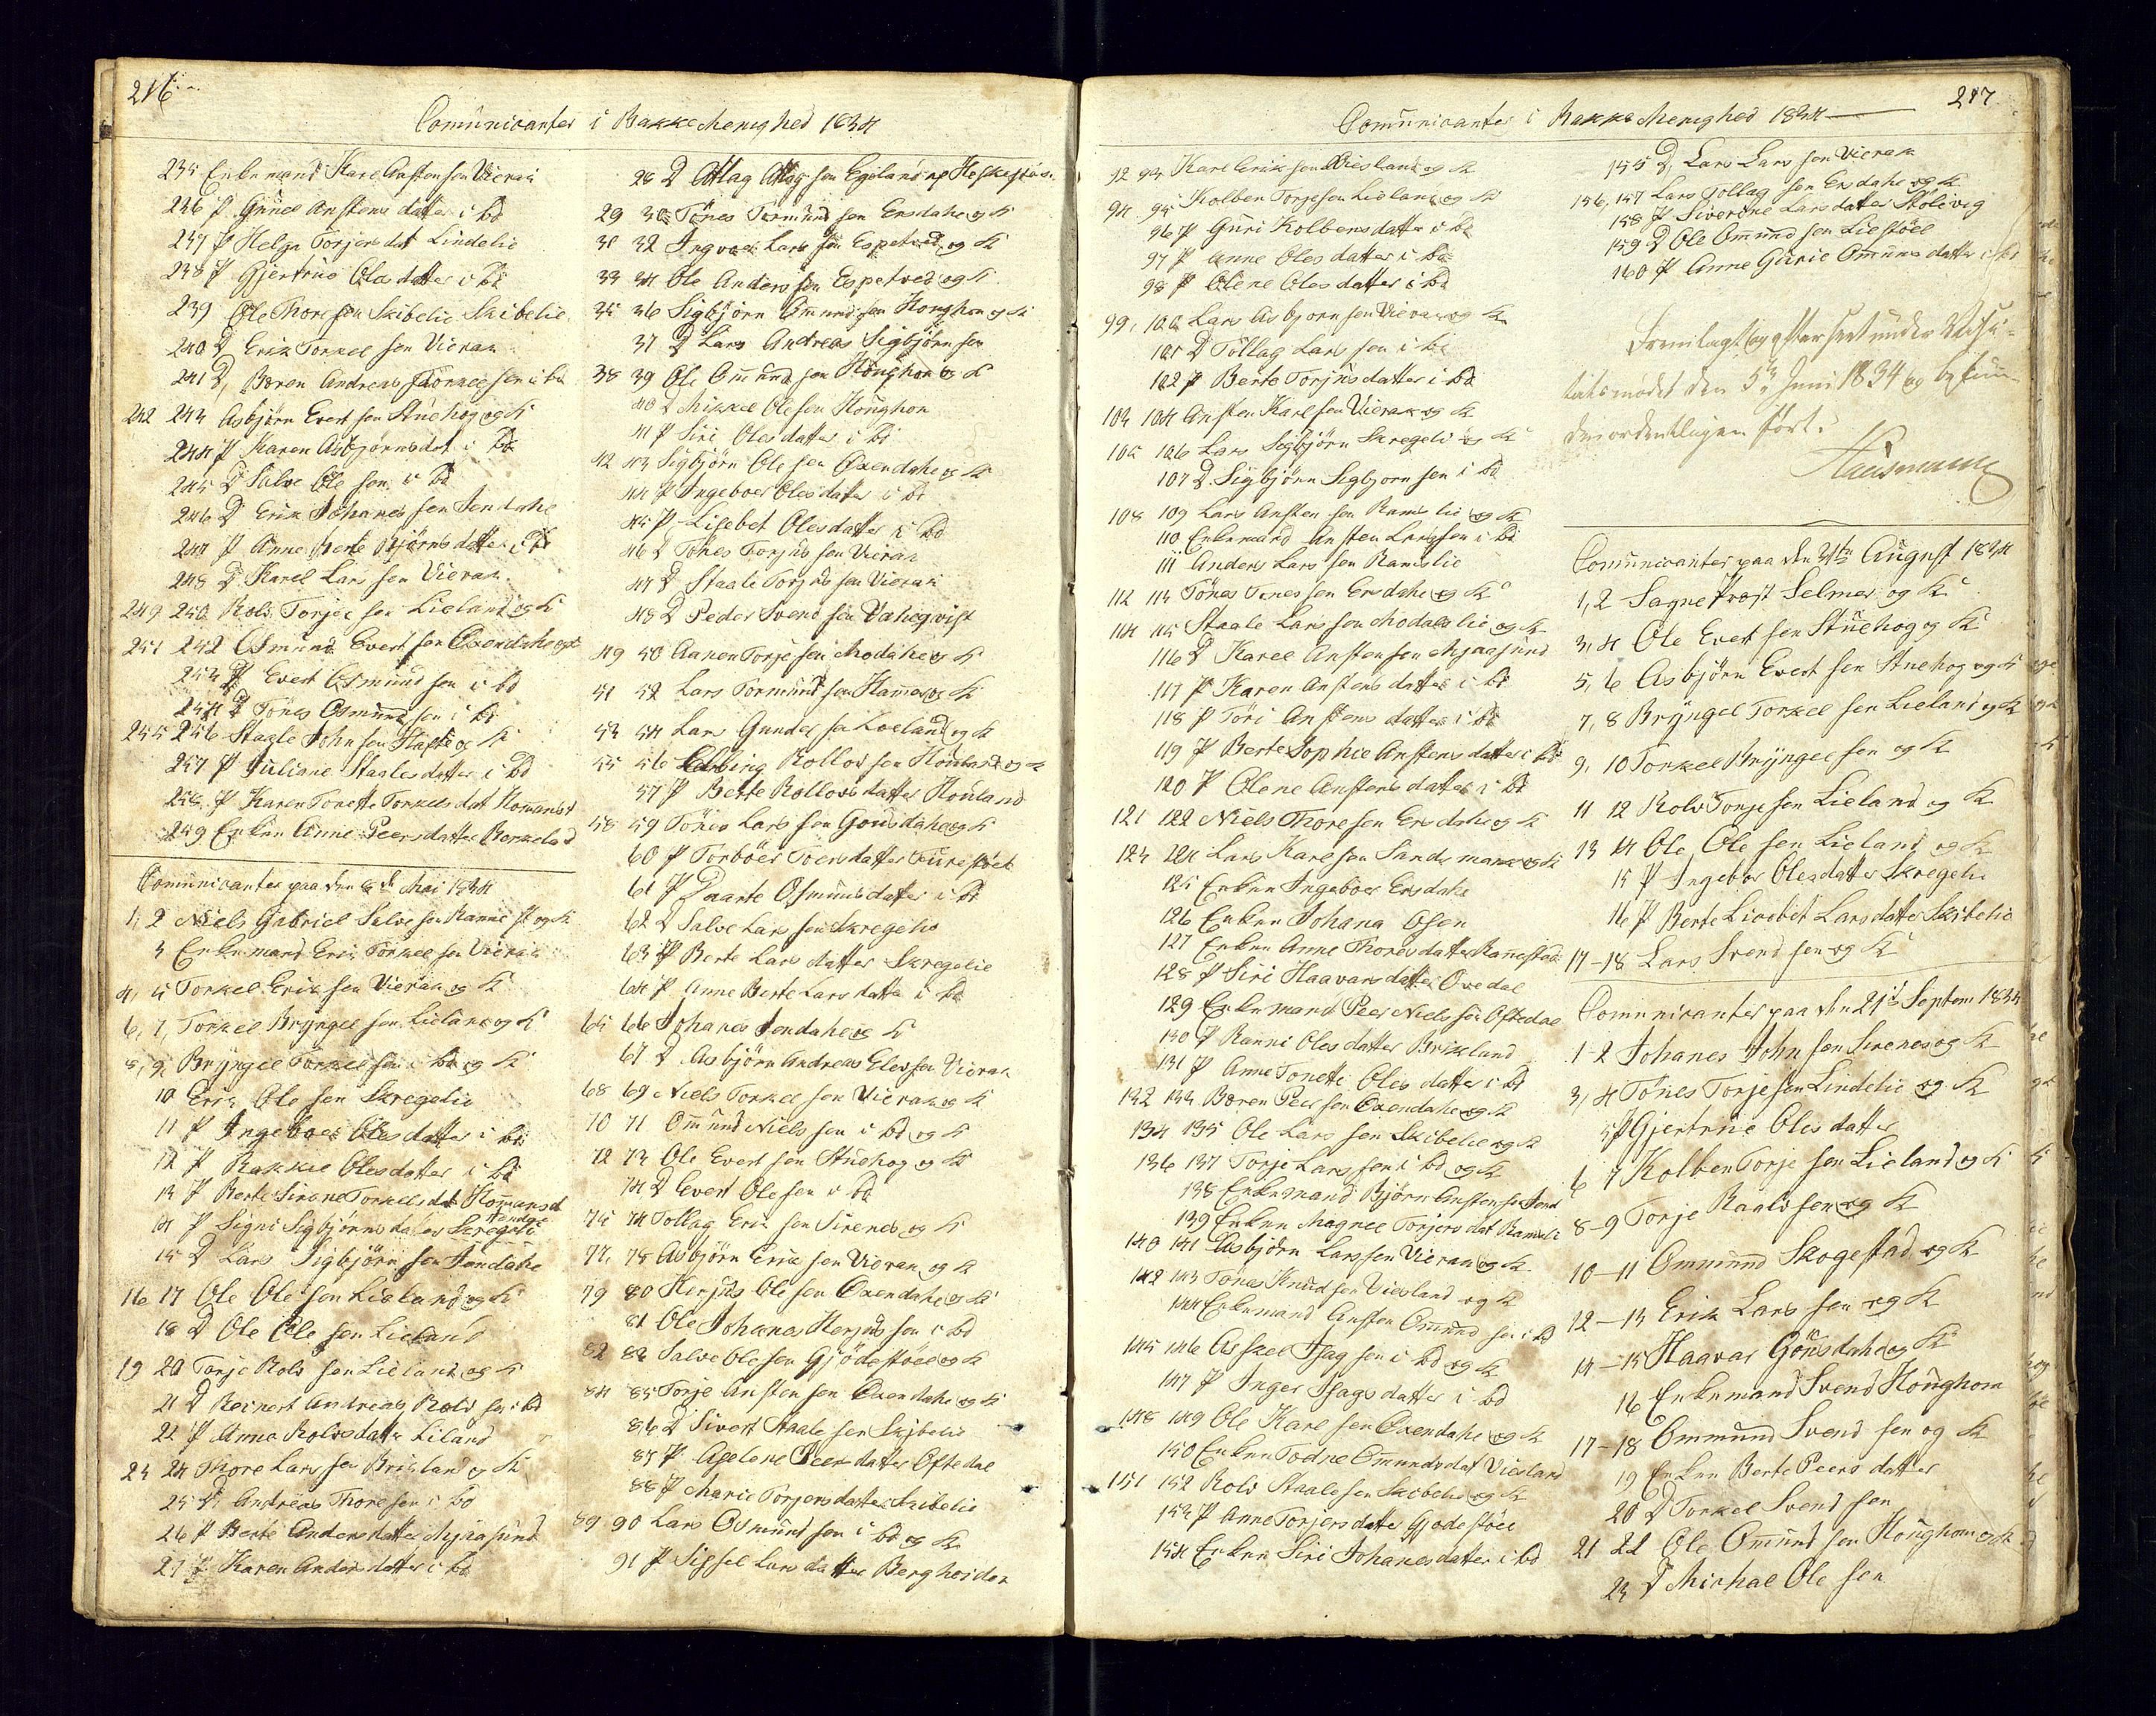 216
Comunicanter i Bakke Menighed 1834
235 Enkemand Karl Anstensen Vieran
236 P Gunel Anstens datter i bd
237 P Helga Torjers dat Lindelie
238 P Gjertrue Oles datter i bd
239 Ole Thoresen Skibelie Skibelie
240 D Erik Torkel sen Vieran
241 D, Bæren Andreas Torkel sen i bd
242 243 Asbjørn Evert sen Stuehog og K
244 P Karen Asbjørns dat i bd
245 D Salve Ole sen i bd
246 D Erik Johanes sen Jendahe
247 P Anne Berte Bjørns datter i bd
248 D Karel Lars sen Vieran
249 250 Rolv Torjer sen Lieland og K
251 252 Osmund Evert sen Oxendahe og K
253 D Evert Osmund sen i bd
254 D Tønes Osmund sen i bd
255 256 Staale John sen og K
257 P Juliane Staales datter i bd
258 P Karen Tonette Torkels dat Homanst
259 Enken Anne Peers datter Berkeland
Comunicanter paa den 8de Mai 1834
1, 2 Niels Gabriel Salve sen og K
3 Enkemand Erik Torkel sen Vieran
4, 5 Torkel Erik sen Vieran og K
6, 7, Torkel Bryngel sen Lieland og K
8, 9 Bryngel Torkel sen i bd og K
10 Erik Ole sen Skregelie
11 P Ingeboer Oles datter i bd
12 P Rakkel Oles datter i bd
13 P Berte Sirene Torkels dat Homanst
14 P Signi Sigbjørns datter Skregelie
15 D Lars Sigbjørn sen Jendahe
16 17 Ole Ole sen Lieland og K
18 D Ole Ole sen Lieland
19 20 Torje Rolv sen Lieland og K
21 D Reinert Andreas Rolv sen i bd
22 P Anna Rolvs datter Liland
23 24 Thore Lars sen Brikland og K
25 D Andreas Thore sen i bd
26 P Berte Anders datter Mjaasund
27 P Karen Anders datter i bd
28 D Atlag Atlag sen Egeland
29 30 Tønes Tormund sen Ersdahe og K
31 32 Ingvar Lars sen Espetved og K
33 34 Ole Anders sen Espetved og K
35 36 Sigbjørn Omund sen Honghom og K
37 D Lars Andreas Sigbjørn sen
38 39 Ole Omund sen Honghom og K
40 D Mikkel Ole sen Honghom
41 P Siri Oles datter i bd
42 43 Sigbjørn Ole sen Oxendahe og K
44 P Ingeboer Oles datter i bd
45 P Lisebet Oles datter i bd
46 D Tønes Torjus sen Vieran
47 D Staale Torjus sen Vieran
48 D Peder Svend sen Vaheqvist
49 50 Aanen Torje sen Modahe og K
51 52 Lars Tormund sen Hamer og K
53 54 Lars Gundel sen Loeland og K
55 56 Elling Rollov sen Houland og K
57 P Berte Rollovs datter Houland
58 59 Tønes Lars sen Gousdahe og K
60 P Torbøer Toers datter Furestøel
61 P Daarte Osmunds datter i bd
62 D Salve Lars sen Skregelie
63 P Berte Lars datter Skregelie
64 P Anne Berte Lars datter i bd
65 66 Johanes Jendahe og K
67 D Asbjørn Andreas Elev sen Vieran
68 69 Niels Torkel sen Vieran og K
70 71 Omund Niels sen i bd og K
72 73 Ole Evert sen Stuehog og K
74 D Evert Ole sen i bd
75 74 Tollag Erik sen Sirenes og K
77, 78 Asbjørn Erik sen Vieran og K
79 80 Herjus Ole sen Oxendahe og K
81 Ole Johanes Herjus sen i bd
82 83 Salve Ole sen Gjødestøel og K
84 85 Torje Ansten sen Oxendahe og K
86 D Sivert Staale sen Skibelie
87 P Agelene Peers datter Oftedal
88 P Marie Torjers datter Skibelie
89 90 Lars Osmund sen i bd og K
91 P Sissel Lars datter Bergheiden
217
Comunicanter i Bakke Menighed 1834
92 93 Karl Erik sen Viesland og K
94 95 Kolben Torje sen Lieland og K
96 P Guri Kolbens datter i bd
97 P Anne Oles datter i bd
98 P Olene Oles datter i bd
99, 100 Lars Asbjorn sen Vieran og K
101 D Tollag Lars sen i bd
102 P Berte Torjus datter i bd
103 104 Ansten Karl sen Vieran og K
105 106 Lars Sigbjørn Skregeli og K
107 D Sigbjørn Sigbjorn sen i bd
108 109 Lars Ansten sen Ramslie og K
110 Enkemand Ansten Lars sen i bd
111 Anders Lars sen Ramslie
112 113 Tønes Tønes sen Ersdahe og K
114 115 Staale Lars sen Modalslie og K
116 D Karel Ansten sen Mjaasund
117 P Karen Anstens datter i bd
118 P Tøri Anstens datter i bd
119 P Berte Sophie Anstens datter i bd
120 P Olene Anstens datter i bd
121 122 Niels Thore sen Ersdahe og K
123 124 Lars Karl sen Sandsmark og K
125 Enken Ingeboer Ersdahe
126 Enken Johana Osen
127 Enken Anne Thores datter Rannestad
128 P Siri Haavars datter Ovedal
129 Enkemand Peer Niels sen Oftedal
130 P Ranni Oles datter Brikland
131 P Anne Tonette Oles datter i bd
132 133 Bæren Peer sen Oxendahe og K
134 135 Ole Lars sen Skibelie og K
136 137 Torje Lars sen i bd og K
138 Enkemand Bjørn Ansten sen Jend
139 Enken Magnel Torjers dat Ramsli
140 141 Asbjørn Lars sen Vieran og K
142 143 Tønes Knud sen Viesland og K
144 Enkemand Ansten Omund sen i bd
145 146 Askel Isag sen i bd og K
147 P Inger Isags datter i bd
148 149 Ole Karl sen Oxendahe og K
150 Enken Todne Omunds dat Viesland
151 152 Rolv Staale sen Skibelie og K
153 P Anne Torjers datter Gjodestøel
154 Enken Siri Johanes datter i bd
155 D, Lars Lars sen Vieran
156, 157 Lars Tollag sen Ersdahe og K
158 P Siverine Lars datter Stolsvig
159 D Ole Omund sen Liestøel
160 P Anne Gurie Omunds datter i bd
Fremlagt og efterseet under Visi-
tatsmødet den 5te Juni 1834 og befun-
den ordentligen ført.
Comunicanter paa den 31te August 1834
1, 2 Sogne Prest Selmer og K
3, 4 Ole Evert sen Stuehog og K
5, 6 Asbjörn Evert sen Stuehog og K
7, 8 Bryngel Torkel sen Lieland og K
9, 10 Torkel Bryngel sen og K
11 12 Rolv Torje sen Lieland og K
13 14 Ole Ole sen Lieland og K
15 P Ingebor Oles datter Skregelie
16 P Berte Lisebet Lars datter Skibelie
17-18 Lars Svend sen og K
Comunicanter paa den 21de Septem 1834
1-2 Johanes John sen Sirenes og K
3, 4 Tönes Torje sen Lindelie og K
5 P Gjertrue Oles datter
6 7 Kolben Torje sen Lieland og K
8-9 Torje Raalv sen og K
10-11 Ommund Skogestad og K
12-13 Erik Lars sen og K
14-15 Haavar Gousdahe og K
16 Enkemand Svend Houghom
17-18 Ommund Svend sen og K
19 Enken Berte Peers datter
20 D Torkel Svend sen
21 22 Ole Omund sen Houghom og K
23 D Michal Ole sen